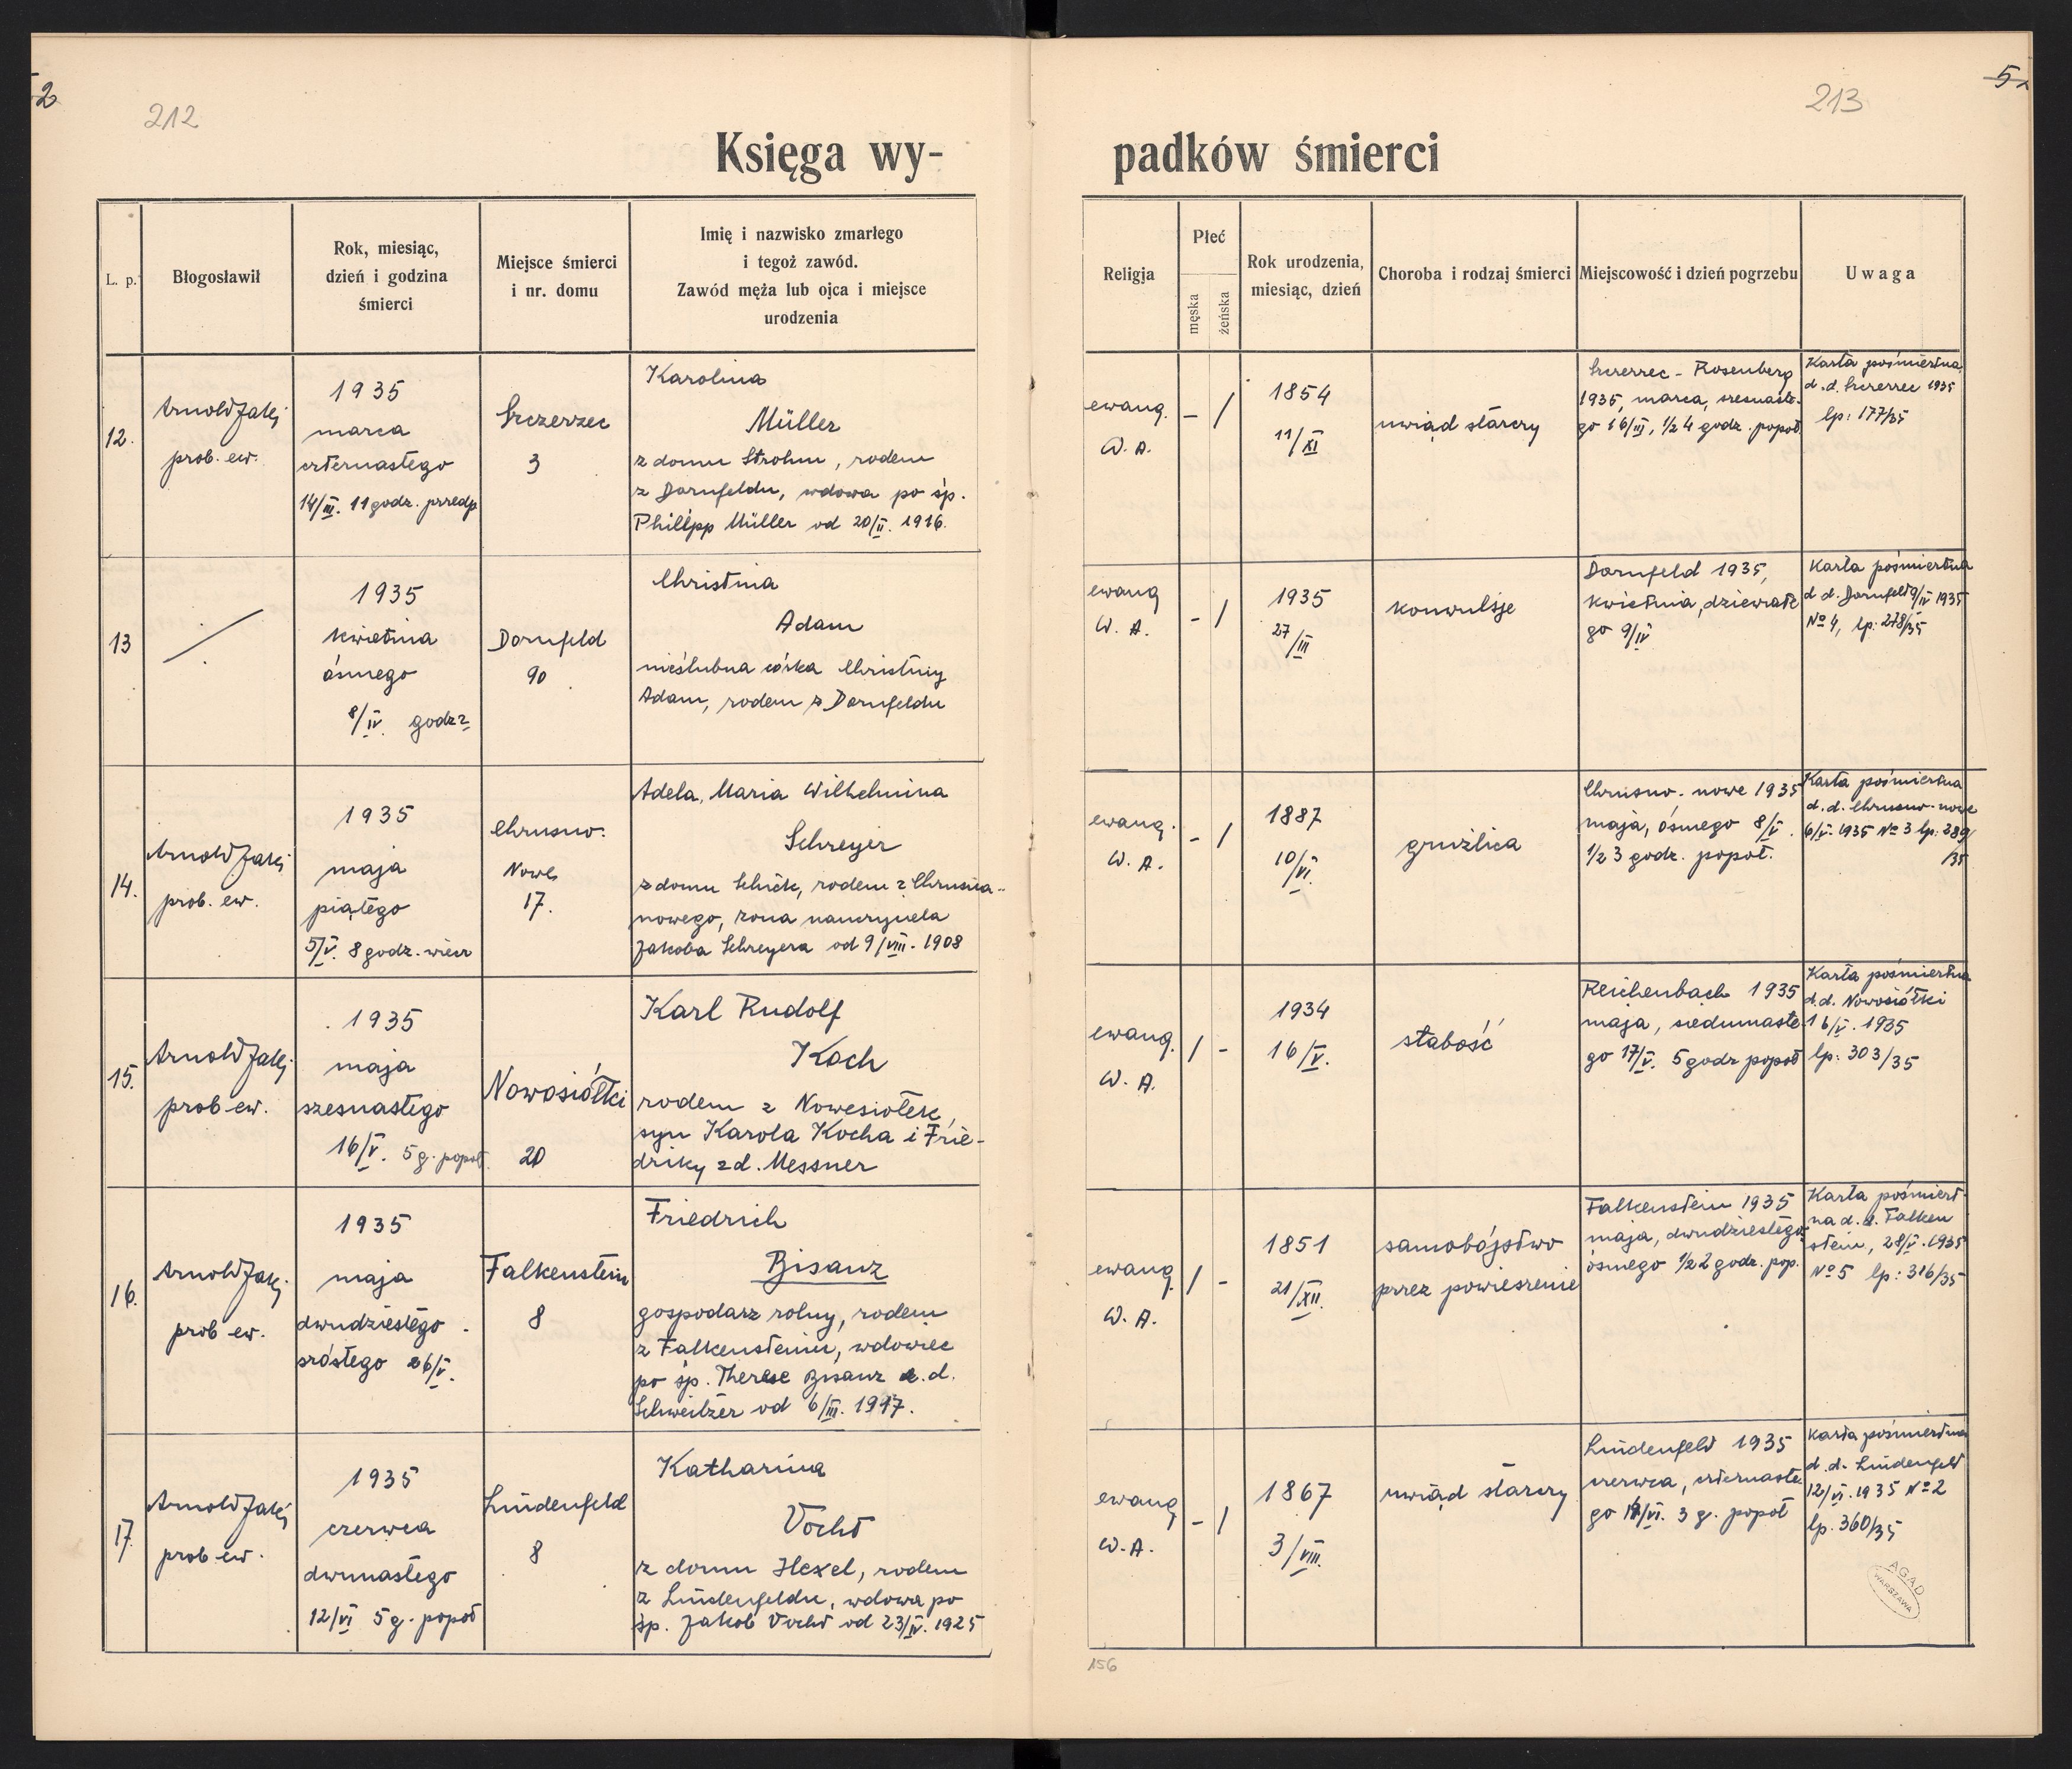 52
212
213
52
Księga wy-
padków śmierci
L. p.
Błogosławił
Rok, miesiąc,
dzień i godzina
śmierci
Miejsce śmierci
i nr. domu
Imię i nazwisko zmarłego
i tegoż zawód.
Zawód męża lub ojca i miejsce
urodzenia
Religja
Płeć
męska
żeńska
Rok urodzenia,
miesiąc, dzień
Choroba i rodzaj śmierci
Miejscowość i dzień pogrzebu
Uwaga
12.
prob. ew.
1935
marca
czternastego
14/III. 11 godz. przedp
Szczerzec
3
Karolina
Müller
z domu Strohm, rodem
z Dornfeldu, wdowa po śp.
Philipp Müller od 20/II. 1916.
ewang.
W. A.
- /
1854
11/XI
uwiąd starczy
Szczerzec - Rosenberg
1935, marca, szesnaste-
go 16/III, 1/2 4 godz. popoł.
Karta pośmiertna
d. d. Szczerzec 1935
lp: 177/35
13
/
1935
kwietnia
ósmego
8/IV. godz?
Dornfeld
90
Christina
Adam
nieślubna córka Christiny
Adam, rodem z Dornfeldu
ewang
W. A.
- /
1935
27/III
konwulsje
Dornfeld 1935,
kwietnia, dziewiąte
go 9/IV
Karta pośmiertna
d d. Dornfeld 9/IV 1935
No 4, lp: 278/35
14.
prob. ew.
1935
maja
piątego
5/V. 8 godz. wiecz
Chrusno.
Nowe
17.
Adela, Maria Wilhelmina
Schreyer
z domu Schick, rodem z Chrusna-
nowego, żona nauczyciela
Jakoba Schreyera od 9/VIII. 1908
ewang.
W. A.
- /
1887
10/VI.
gruźlica
Chrusno. nowe 1935
maja, ósmego 8/V.
1/2 3 godz. popoł.
Karta pośmiertna
d. d. Chrusno-nowe
6/V. 1935 No 3 lp: 289
/35
15.
prob ew.
1935
maja
szesnastego
16/V. 5 g. popoł.
Nowosiółki
20
Karl Rudolf
Koch
rodem z Nowosiołek,
syn Karola Kocha i Frie-
driky z d. Messner
ewang.
W. A.
/ -
1934
16/V.
słabość
Reichenbach 1935
maja, siedumaste-
go 17/V. 5 godz popoł
Karta pośmiertna
d. d. Nowosiółki
16/V. 1935
lp: 303/35
16.
prob ew.
1935
maja
dwudziestego
szóstego 26/V.
Falkenstein
8
Friedrich
Bisanz
gospodarz rolny, rodem
z Falkensteinu, wdowiec
po śp. Therese Bisanz z. d.
Schweitzer od 6/III. 1917.
ewang.
W. A.
/ -
1851
21/XII.
samobójstwo
przez powieszenie
Falkenstein 1935
maja, dwudziestego
ósmego 1/2 2 godz. pop.
Karta pośmiert-
na d. d. Falken
stein, 28/V. 1935
No 5 lp: 316/35
17.
prob ew.
1935
czerwca
dwunastego
12/VI 5 g. popoł
Lindenfeld
8
Katharina
Vocht
z domu Hexel, rodem
z Lindenfeldu, wdowa po
śp. Jakob Vocht od 23/IV. 1925
ewang
W. A.
- /
1867
3/VIII.
uwiąd starczy
Lindenfeld 1935
czerwca, czternaste
go 14/VI. 3 g. popoł
Karta pośmiertna
d. d. Lindenfeld
12/VI. 1935 No 2
lp. 360/35
AGAD
WARSZAWA
156